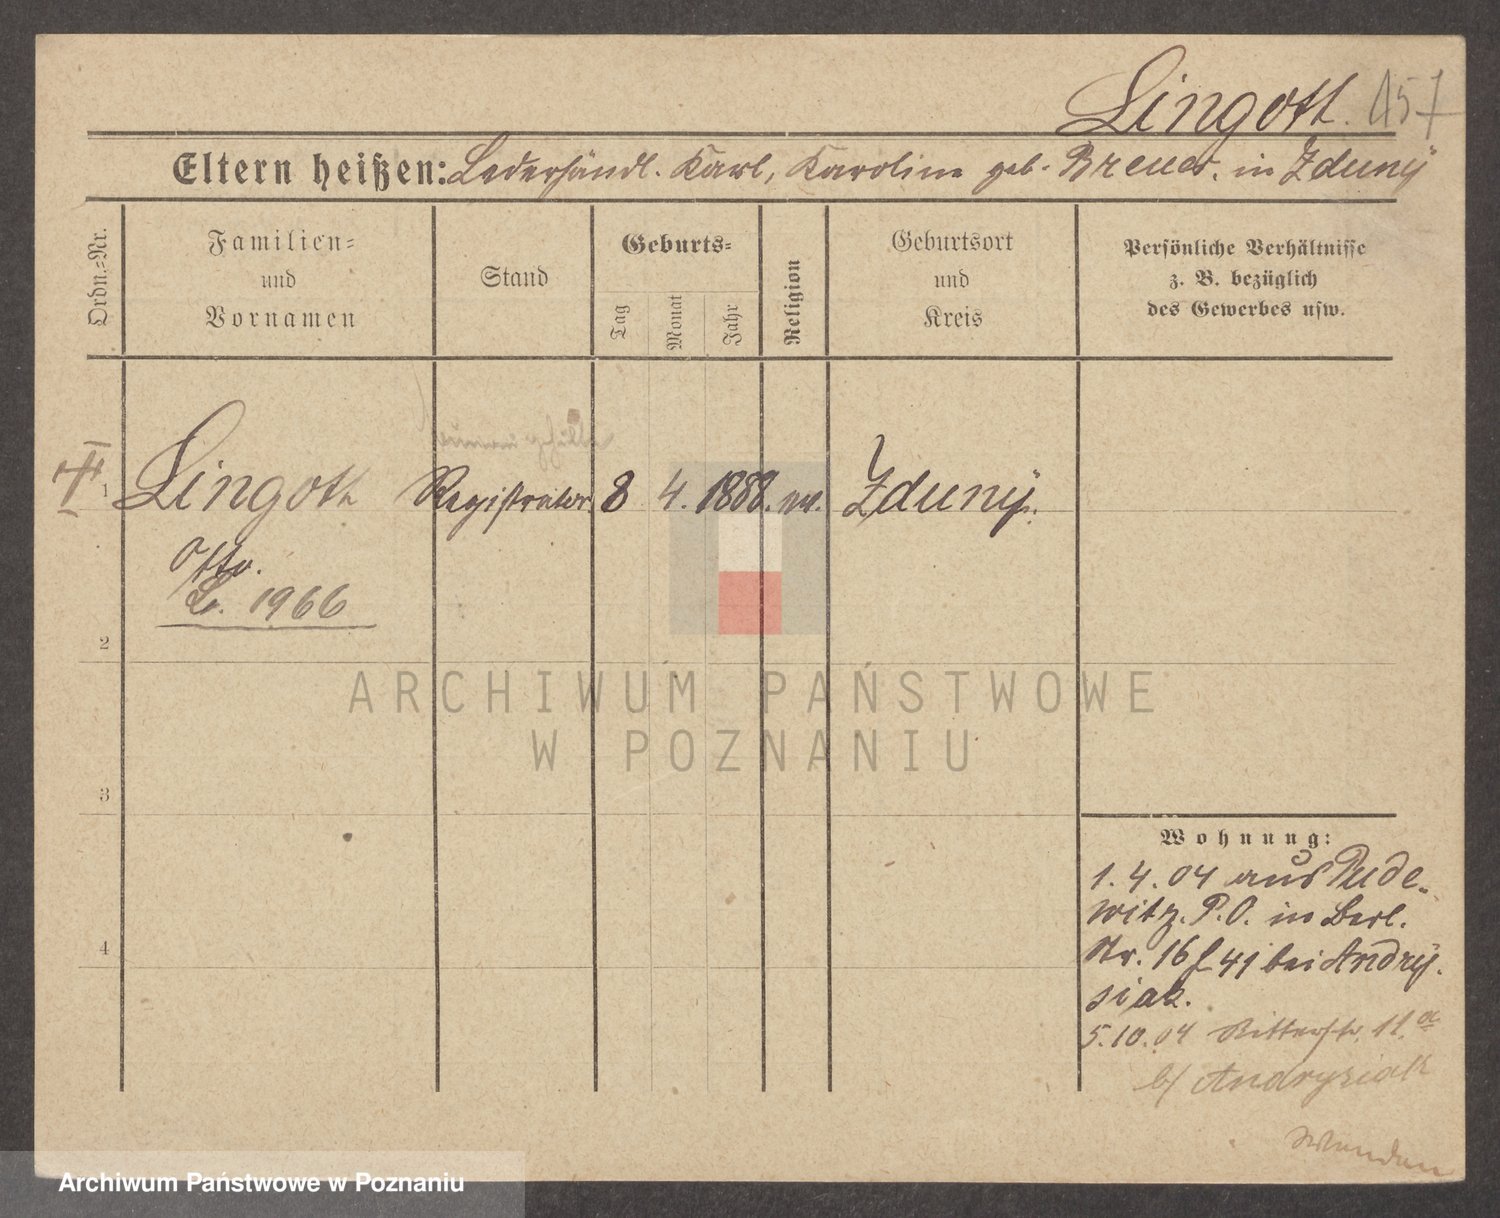 Lingoth. 157
Eltern heißen: Lederhändl. Karl, Karoline geb. Breuer. in Zduny
Ordn.=Nr.
Familien=
und
Vornamen
Stand
Geburts=
Tag
Monat
Jahr
Religion
Geburtsort
und
Kreis
Persönliche Verhältnisse
z. B. bezüglich
des Gewerbes usw.
1 Lingoth Registrator 8 4. 1888. ev. Zduny.
Otto.
L. 1966
2
3
4
Wohnung:
1.4.04 aus Pude-
witz. P.O. in Berl.
Str. 16 f 41 bei Andry.
siak.
5.10.04 Ritterstr. 11.a
b/ Andrysiak
Wenden
ARCHIWUM PAŃSTWOWE
W POZNANIU
Archiwum Państwowe w Poznaniu